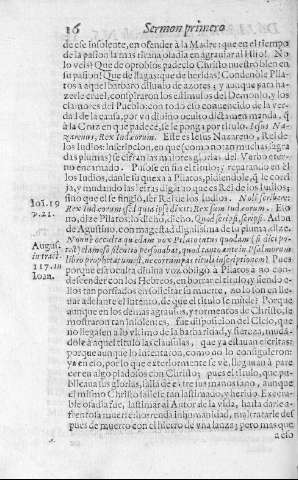 16 Sermon primero
de ese insolente, en ofender à la Madre: que en el tiempo
de la pasion la mas tirana osadia en agraviar al Hijo. No
lo veis? Que de oprobios padeció Christo nuestro bien en
su pasion! Que de llagas: que de heridas! Condenòle Pilatos
à aquel barbaro diluvio de azotes; y aunque para
nazerle cruel, conspiraron los estimulos del Demonio, y los
clamores del Pueblo: con todo esso convencido de la verdad
de la causa, por un divino oculto dictamen manda, q̃
à la Cruz en que padece, se le ponga por titulo. Jesus Nazarenus,
Rex Judæorum. Este es Jesus Nazareno, Rei de
los Judios: inscripcion, en que (como notan muchas sagradas
plumas) se cifran las maiores glorias del Verbo eterno
encarnado. Pusose en fin el titulo; y reparando en èl
los Judios, dan le su queja à Pilatos, pidiendole, q̃ le corrija,
y mudando las letras diga: no que es Rei de los Judios;
sino que el se fingiò, ser Rei de los Judios. Noli scribere:
Rex Judæorum: sed quia ipse dixit: Rex sum Judæorum. Eso
no, dize Pilatos: lo dicho, dicho. Quod scripsi, scripsi. Adonde
Agustino, con magestad dignissima de su pluma dize.
Nonne occulta quædam vox Pilato intus quadam (si dici potest)
clamoso silentio personabat, quod tanto ante in Psalmorum
libro prophetatum est, ne corrumpas tituli inscriptionem? Pues
porque esta oculta divina voz obligò à Pilatos à no condescender
con los Hebreos, en borrar el titulo, y siendo ellos
tan porfiados en solicitar la muerte, no lo son en llevar
adelante el intento, de que el titulo se mude? Porque
aunque en los demas agravios, y tormentos de Christo, se
mostraron tan insolentes, fue dificil especie de osadia, que
no llegasen à lo ultimo de la barbaridad, y hierro, mudandole
à aquel titulo las clausulas, que ya estauan escritas:
porque aunque lo intentaron, como no lo consiguieron:
ya en eso, por lo que exteriormente se vè, llegauan à parecer
en algo piadosos con Christo; pues el titulo, que publicaua
sus glorias, salia de entre sus manos sano, aunque
el mismo Christo saliese tan lastimado, y herido. Execrable
osadia fue, lastimar al Autor de la vida, hasta darle afrentosa
muerte: horrenda inhumanidad, maltratarle despues
de muerto con el hierro de una lanza; pero mas que
a eso
Ioi. 19
v. 21.
Augus.
in tract.
117. in
Ioan.